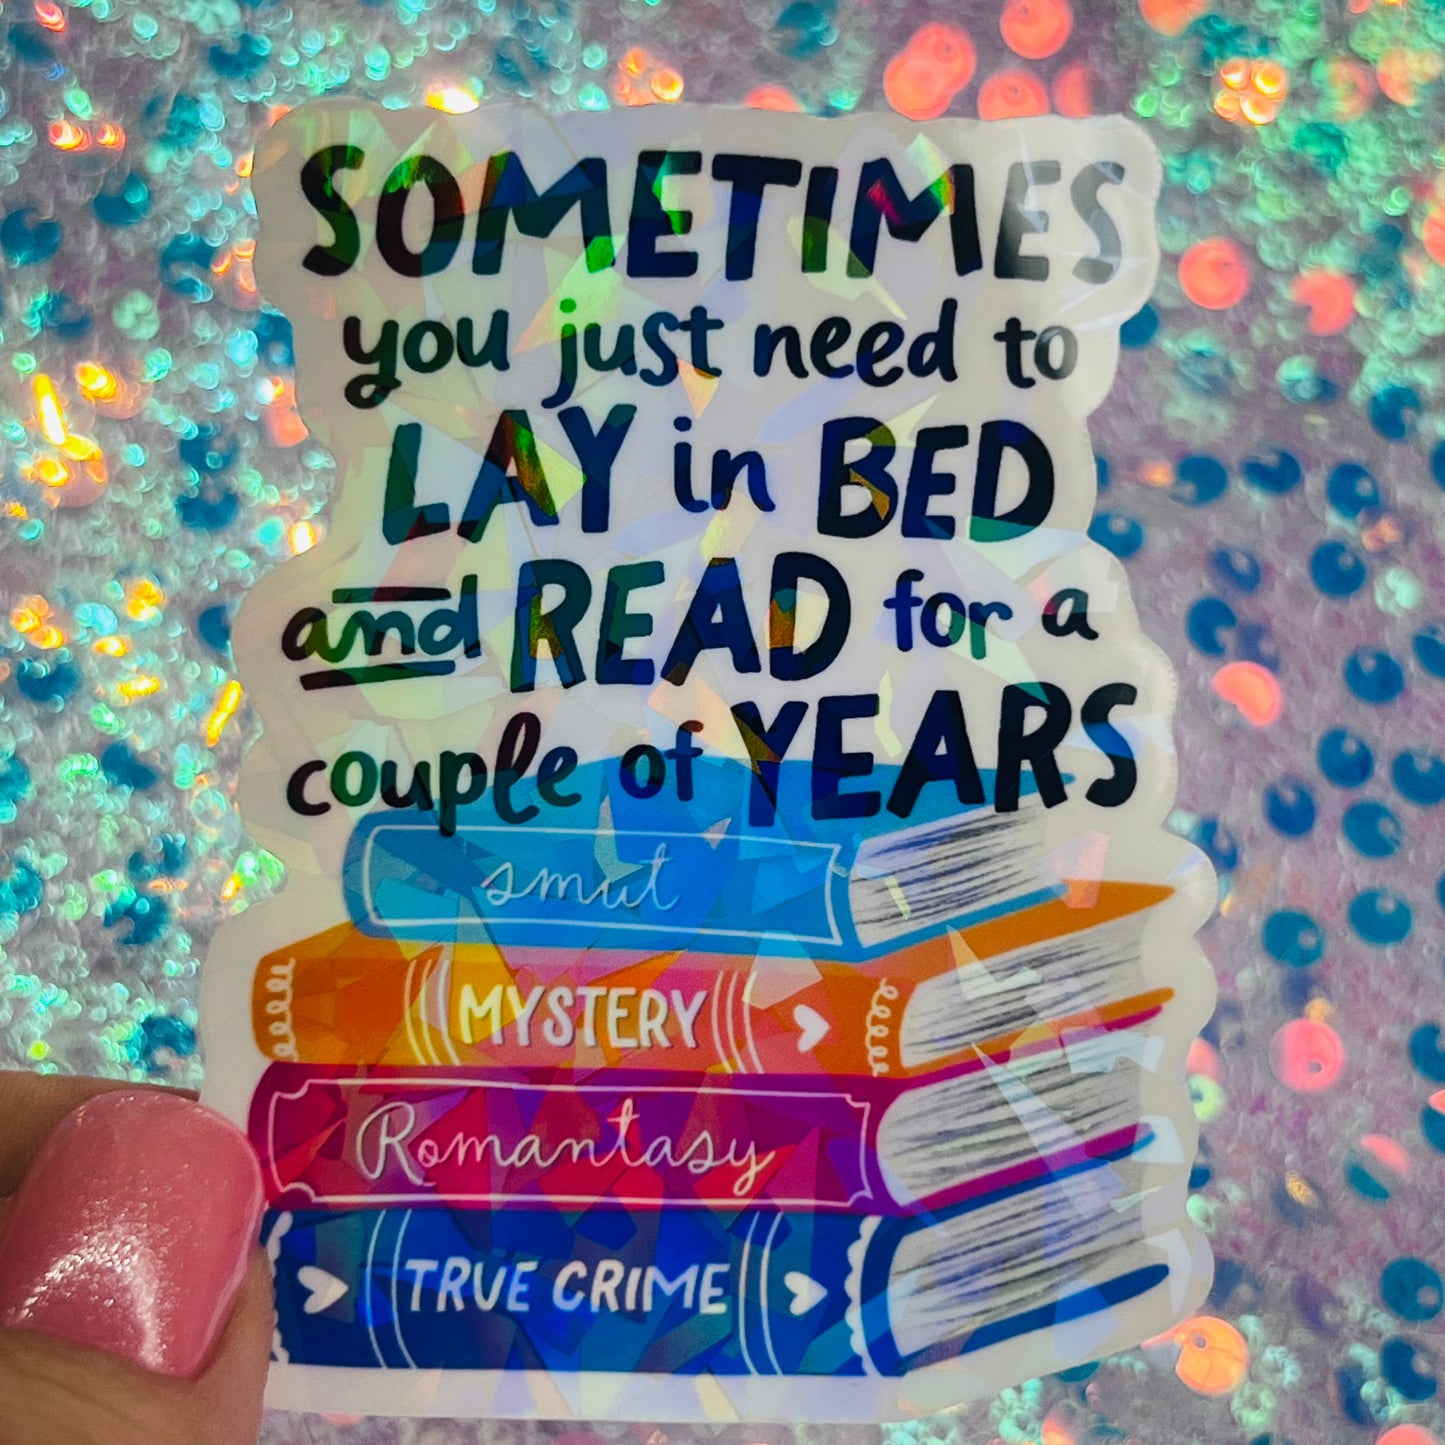 SOMETIMES
you just need to
LAY in BED
and READ for a
couple of YEARS
smut
MYSTERY
Romantasy
TRUE CRIME